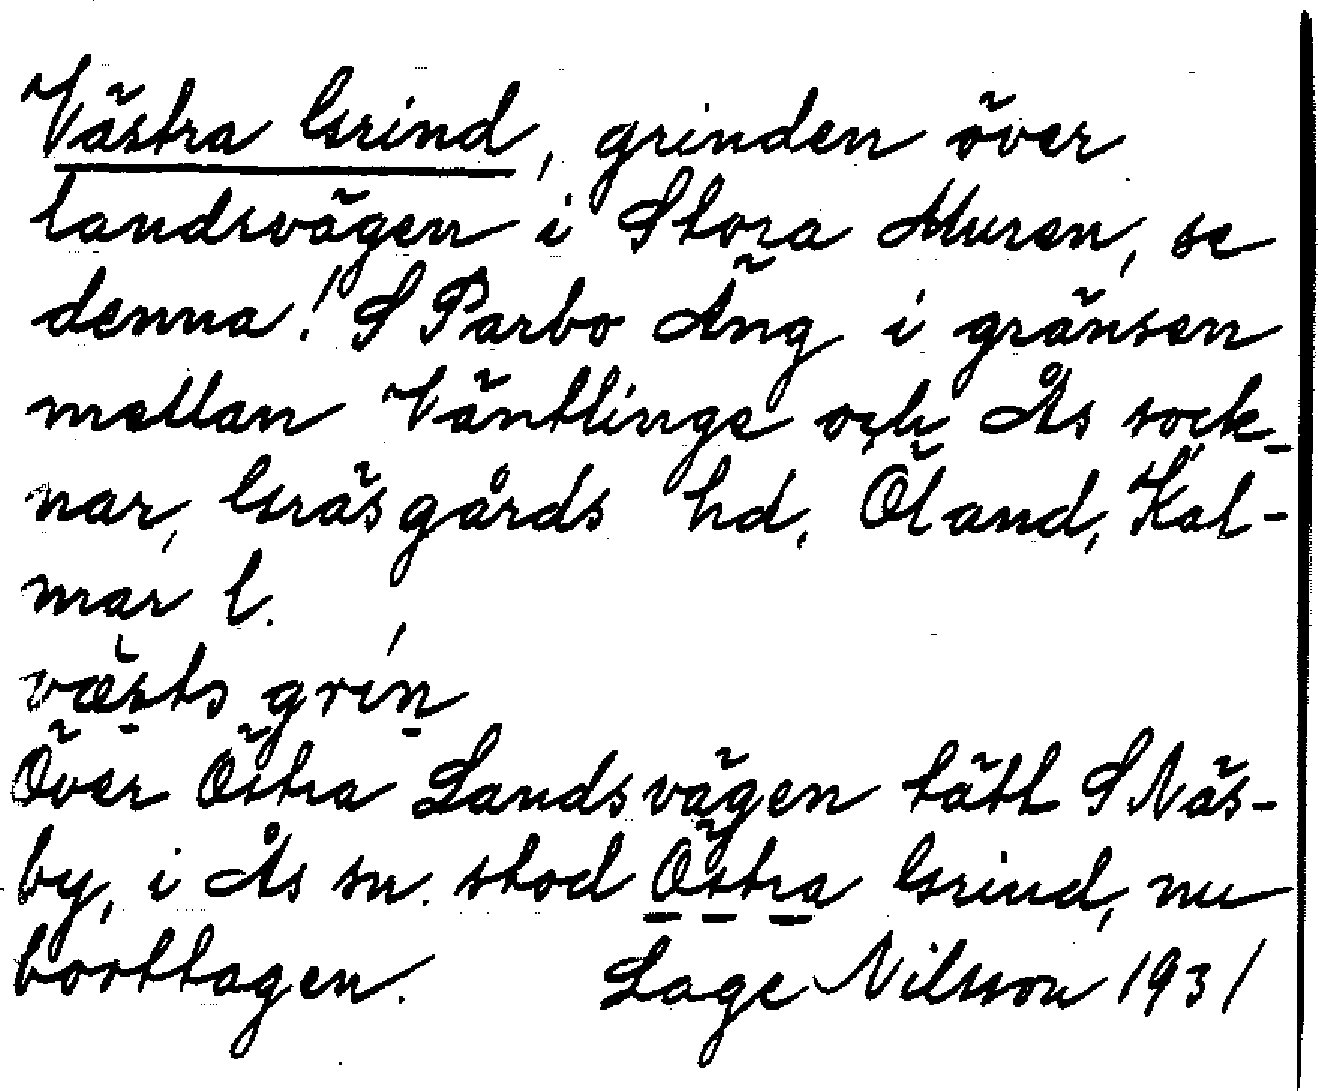 Västra Grind, grinden över
landsvägen i Stora Muren, se
denna! S Parbo Äng i gränsen
mellan Ventlinge och Ås sock-
nar, Gräsgårds hd, Öland, Kal-
mar l.
væsts grin
Över Östra Landsvägen tätt S Näs-
by, i Ås sn. stod Östra Grind, nu
borttagen. Lage Nilsson 1931